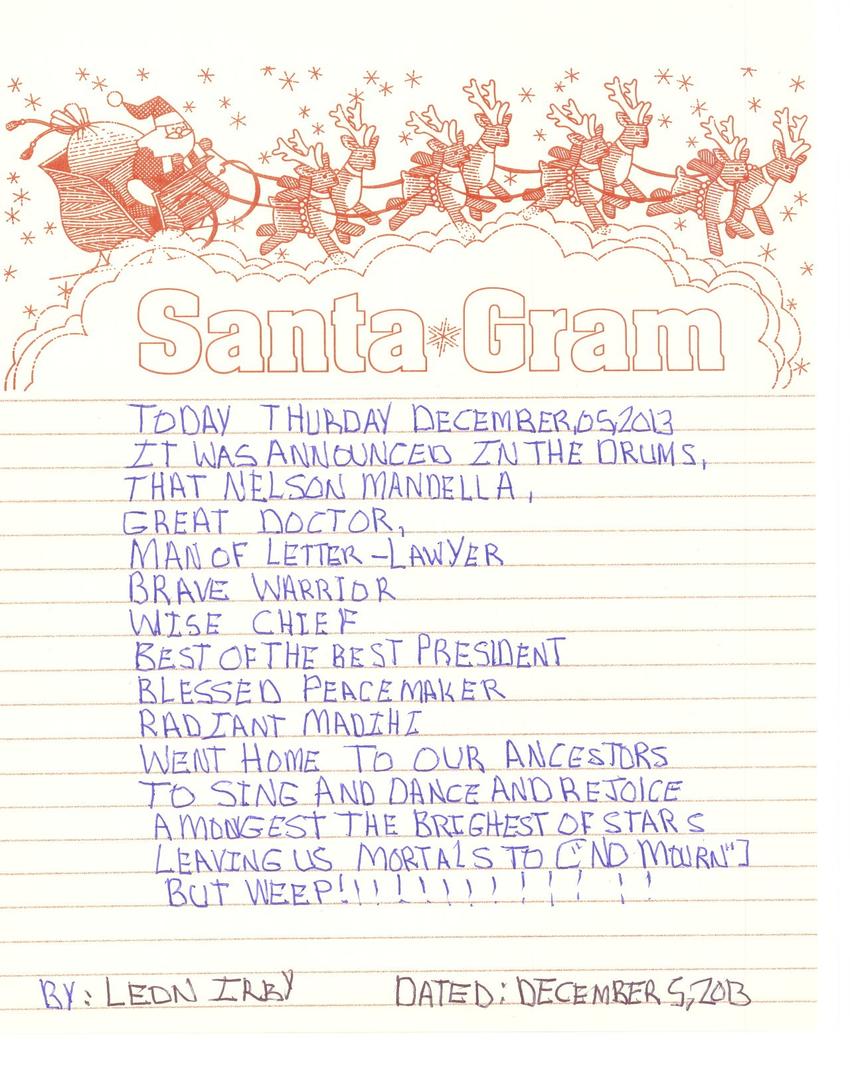 Santa*Gram
TODAY THURDAY DECEMBER,05,2013
IT WAS ANNOUNCED IN THE DRUMS,
THAT NELSON MANDELLA,
GREAT DOCTOR,
MAN OF LETTER-LAWYER
BRAVE WARRIOR
WISE CHIEF
BEST OF THE BEST PRESIDENT
BLESSED PEACEMAKER
RADIANT MADIHI
WENT HOME TO OUR ANCESTORS
TO SING AND DANCE AND REJOICE
AMONGEST THE BRIGHEST OF STARS
LEAVING US MORTALS TO ["NO MOURN"]
BUT WEEP!!!!!!!!!!!!!
BY: LEON IRBY DATED: DECEMBER 5,2013